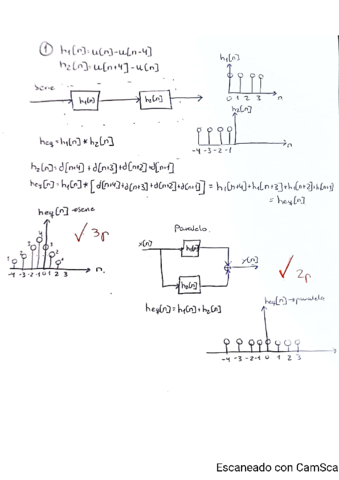 ① h₁[n]=u[n]-u[n-4]
h₂[n]=u[n+4]-u[n]
h₁[n]
0 1 2 3 n
serie
h₁[n] h₂[n]
h₂[n]
-4 -3 -2 -1 n
heq=h₁[n] * h₂[n]
h₂[n]=d[n+4]+d[n+3]+d[n+2]+d[n+1]
heq[n]=h₁[n]*[d[n+4]+d[n+3]+d[n+2]+d[n+1]] = h₁[n+4]+h₁[n+3]+h₁[n+2]+h₁[n+1]
= heq[n]
heq[n]→serie
✓ 3p
-4 -3 -2 -1 0 1 2 3 n.
Paralelo.
x[n] h₁[n] y[n]
h₂[n]
✓ 2p
heq[n]=h₁[n]+h₂[n]
heq[n]→paralelo
-4 -3 -2 -1 0 1 2 3
Escaneado con CamSca